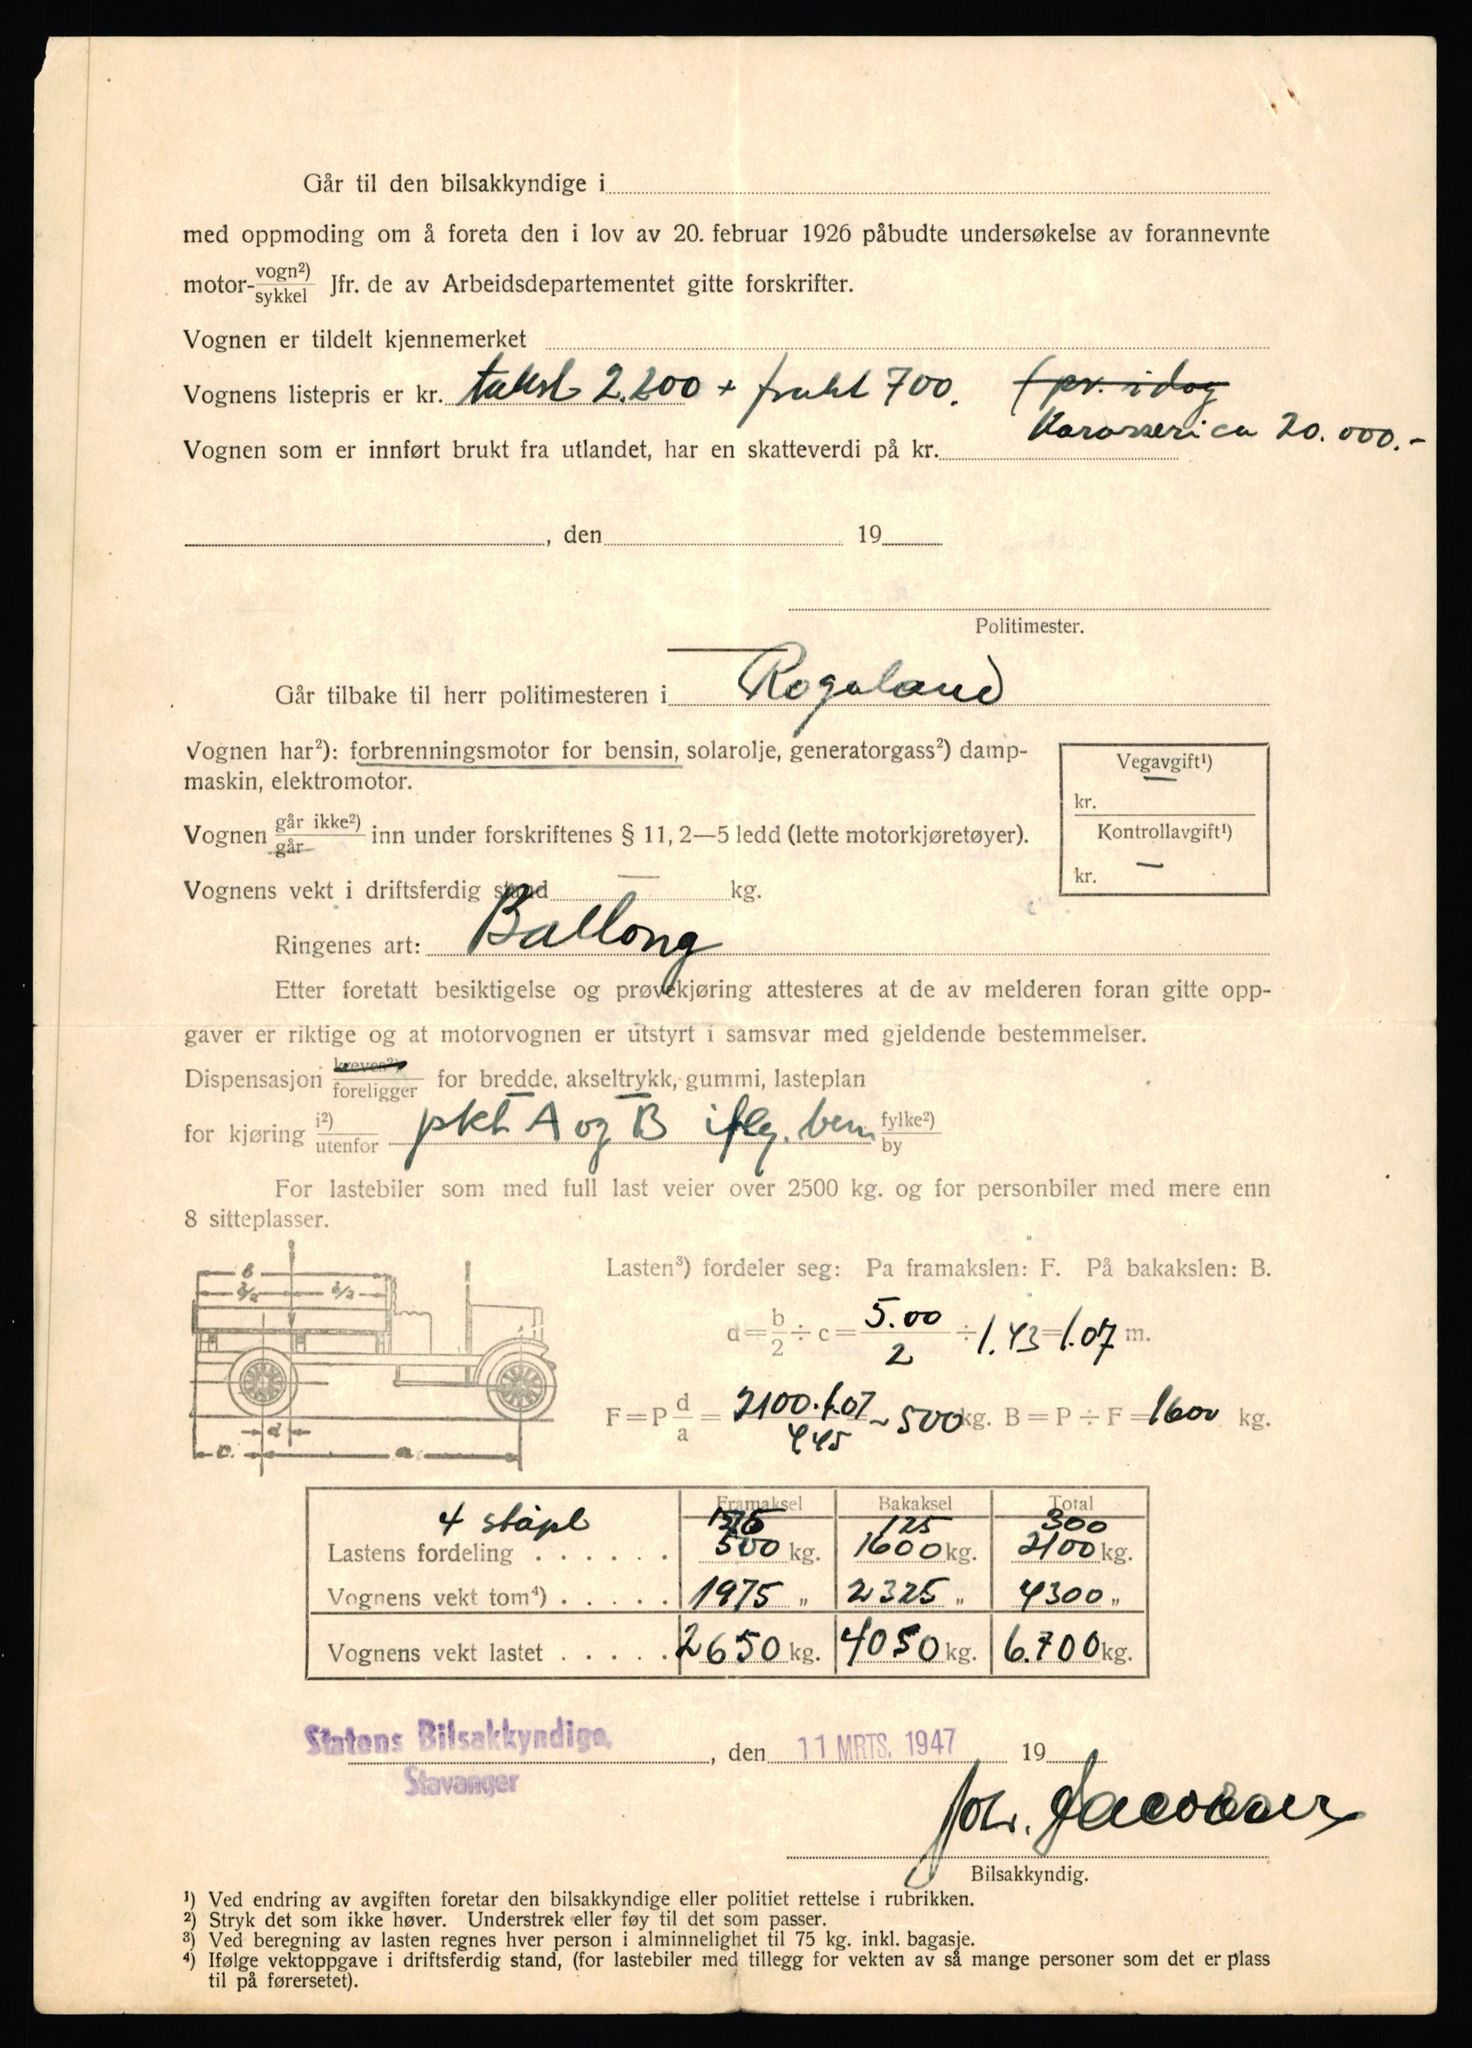 Går til den bilsakkyndige i
med oppmoding om å foreta den i lov av 20. februar 1926 påbudte undersøkelse av forannevnte
motor-vogn²)/sykkel Jfr. de av Arbeidsdepartementet gitte forskrifter.
Vognen er tildelt kjennemerket
Vognens listepris er kr. takst 2.200 + frakt 700. (pr. idag
Karosseri ca 20.000.-
Vognen som er innført brukt fra utlandet, har en skatteverdi på kr.
, den 19
Politimester.
Går tilbake til herr politimesteren i Rogaland
Vognen har²): forbrenningsmotor for bensin, solarolje, generatorgass²) damp-
maskin, elektromotor.
Vegavgift¹)
—
kr.
Kontrollavgift¹)
—
kr.
Vognen går ikke²)/går inn under forskriftenes § 11, 2—5 ledd (lette motorkjøretøyer).
Vognens vekt i driftsferdig stand — kg.
Ringenes art: Ballong
Etter foretatt besiktigelse og prøvekjøring attesteres at de av melderen foran gitte opp-
gaver er riktige og at motorvognen er utstyrt i samsvar med gjeldende bestemmelser.
Dispensasjon kreves²)/foreligger for bredde, akseltrykk, gummi, lasteplan
for kjøring i²)/utenfor pkt A og B iflg. bem fylke²)/by
For lastebiler som med full last veier over 2500 kg. og for personbiler med mere enn
8 sitteplasser.
b
b/2 b/2
d
c. a
Lasten³) fordeler seg: Pa framakslen: F. På bakakslen: B.
d = b/2 ÷ c = 5.00/2 ÷ 1.43 = 1.07 m.
F = P d/a = 2100.1.07/445 ~ 500 kg. B = P ÷ F = 1600 kg.
Framaksel Bakaksel Total
4 ståpl 175 125 300
Lastens fordeling . . . . . . 500 kg. 1600 kg. 2100 kg.
Vognens vekt tom⁴) . . . . . 1975 „ 2325 „ 4300 „
Vognens vekt lastet . . . . . 2650 kg. 4050 kg. 6.700 kg.
Statens Bilsakkyndige, , den 11 MRTS. 1947 19
Stavanger
Joh. Jacobsen
Bilsakkyndig.
¹) Ved endring av avgiften foretar den bilsakkyndige eller politiet rettelse i rubrikken.
²) Stryk det som ikke høver. Understrek eller føy til det som passer.
³) Ved beregning av lasten regnes hver person i alminnelighet til 75 kg. inkl. bagasje.
⁴) Ifølge vektoppgave i driftsferdig stand, (for lastebiler med tillegg for vekten av så mange personer som det er plass
til på førersetet).